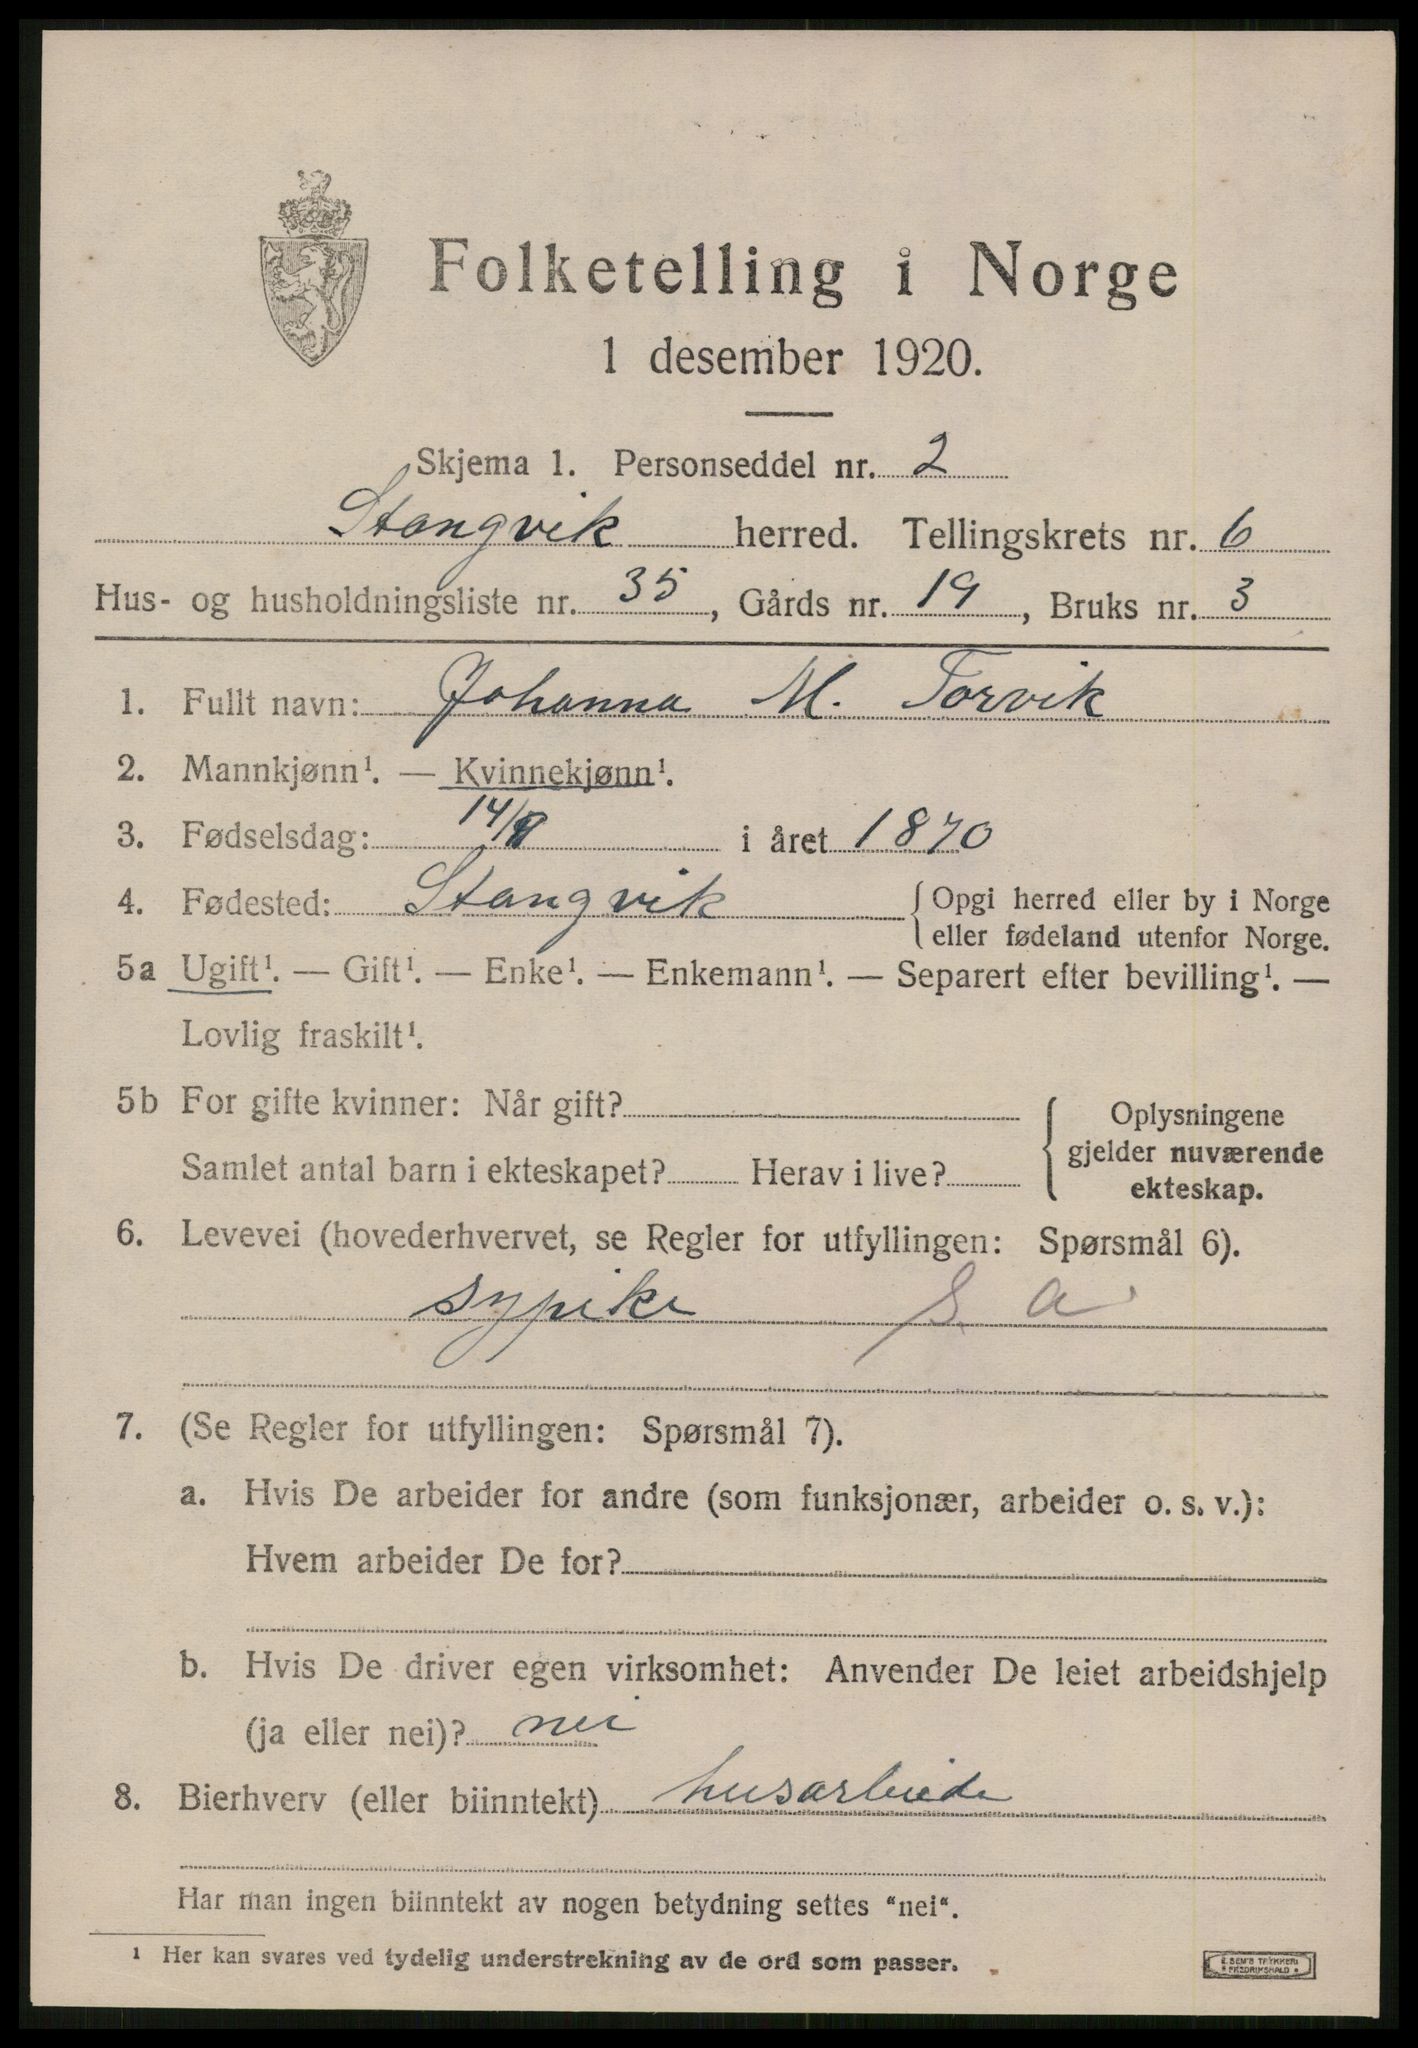 Folketelling i Norge
1 desember 1920.
Skjema 1. Personseddel nr. 2
Stangvik herred. Tellingskrets nr. 6
Hus- og husholdningsliste nr. 35, Gårds nr. 19, Bruks nr. 3
1. Fullt navn: Johanna M. Torvik
2. Mannkjønn¹. — Kvinnekjønn¹.
3. Fødselsdag: 14/8 i året 1870
4. Fødested: Stangvik { Opgi herred eller by i Norge
eller fødeland utenfor Norge.
5a Ugift¹. — Gift¹. — Enke¹. — Enkemann¹. — Separert efter bevilling¹. —
Lovlig fraskilt¹.
5b For gifte kvinner: Når gift?
Samlet antal barn i ekteskapet? Herav i live?
{ Oplysningene
gjelder nuværende
ekteskap.
6. Levevei (hovederhvervet, se Regler for utfyllingen: Spørsmål 6).
sypike S. a
7. (Se Regler for utfyllingen: Spørsmål 7).
a. Hvis De arbeider for andre (som funksjonær, arbeider o. s. v.):
Hvem arbeider De for?
b. Hvis De driver egen virksomhet: Anvender De leiet arbeidshjelp
(ja eller nei)? nei
8. Bierhverv (eller biinntekt) husarbeide
Har man ingen biinntekt av nogen betydning settes "nei".
¹ Her kan svares ved tydelig understrekning av de ord som passer.
E. SEM'S TRYKKERI
FREDRIKSHALD